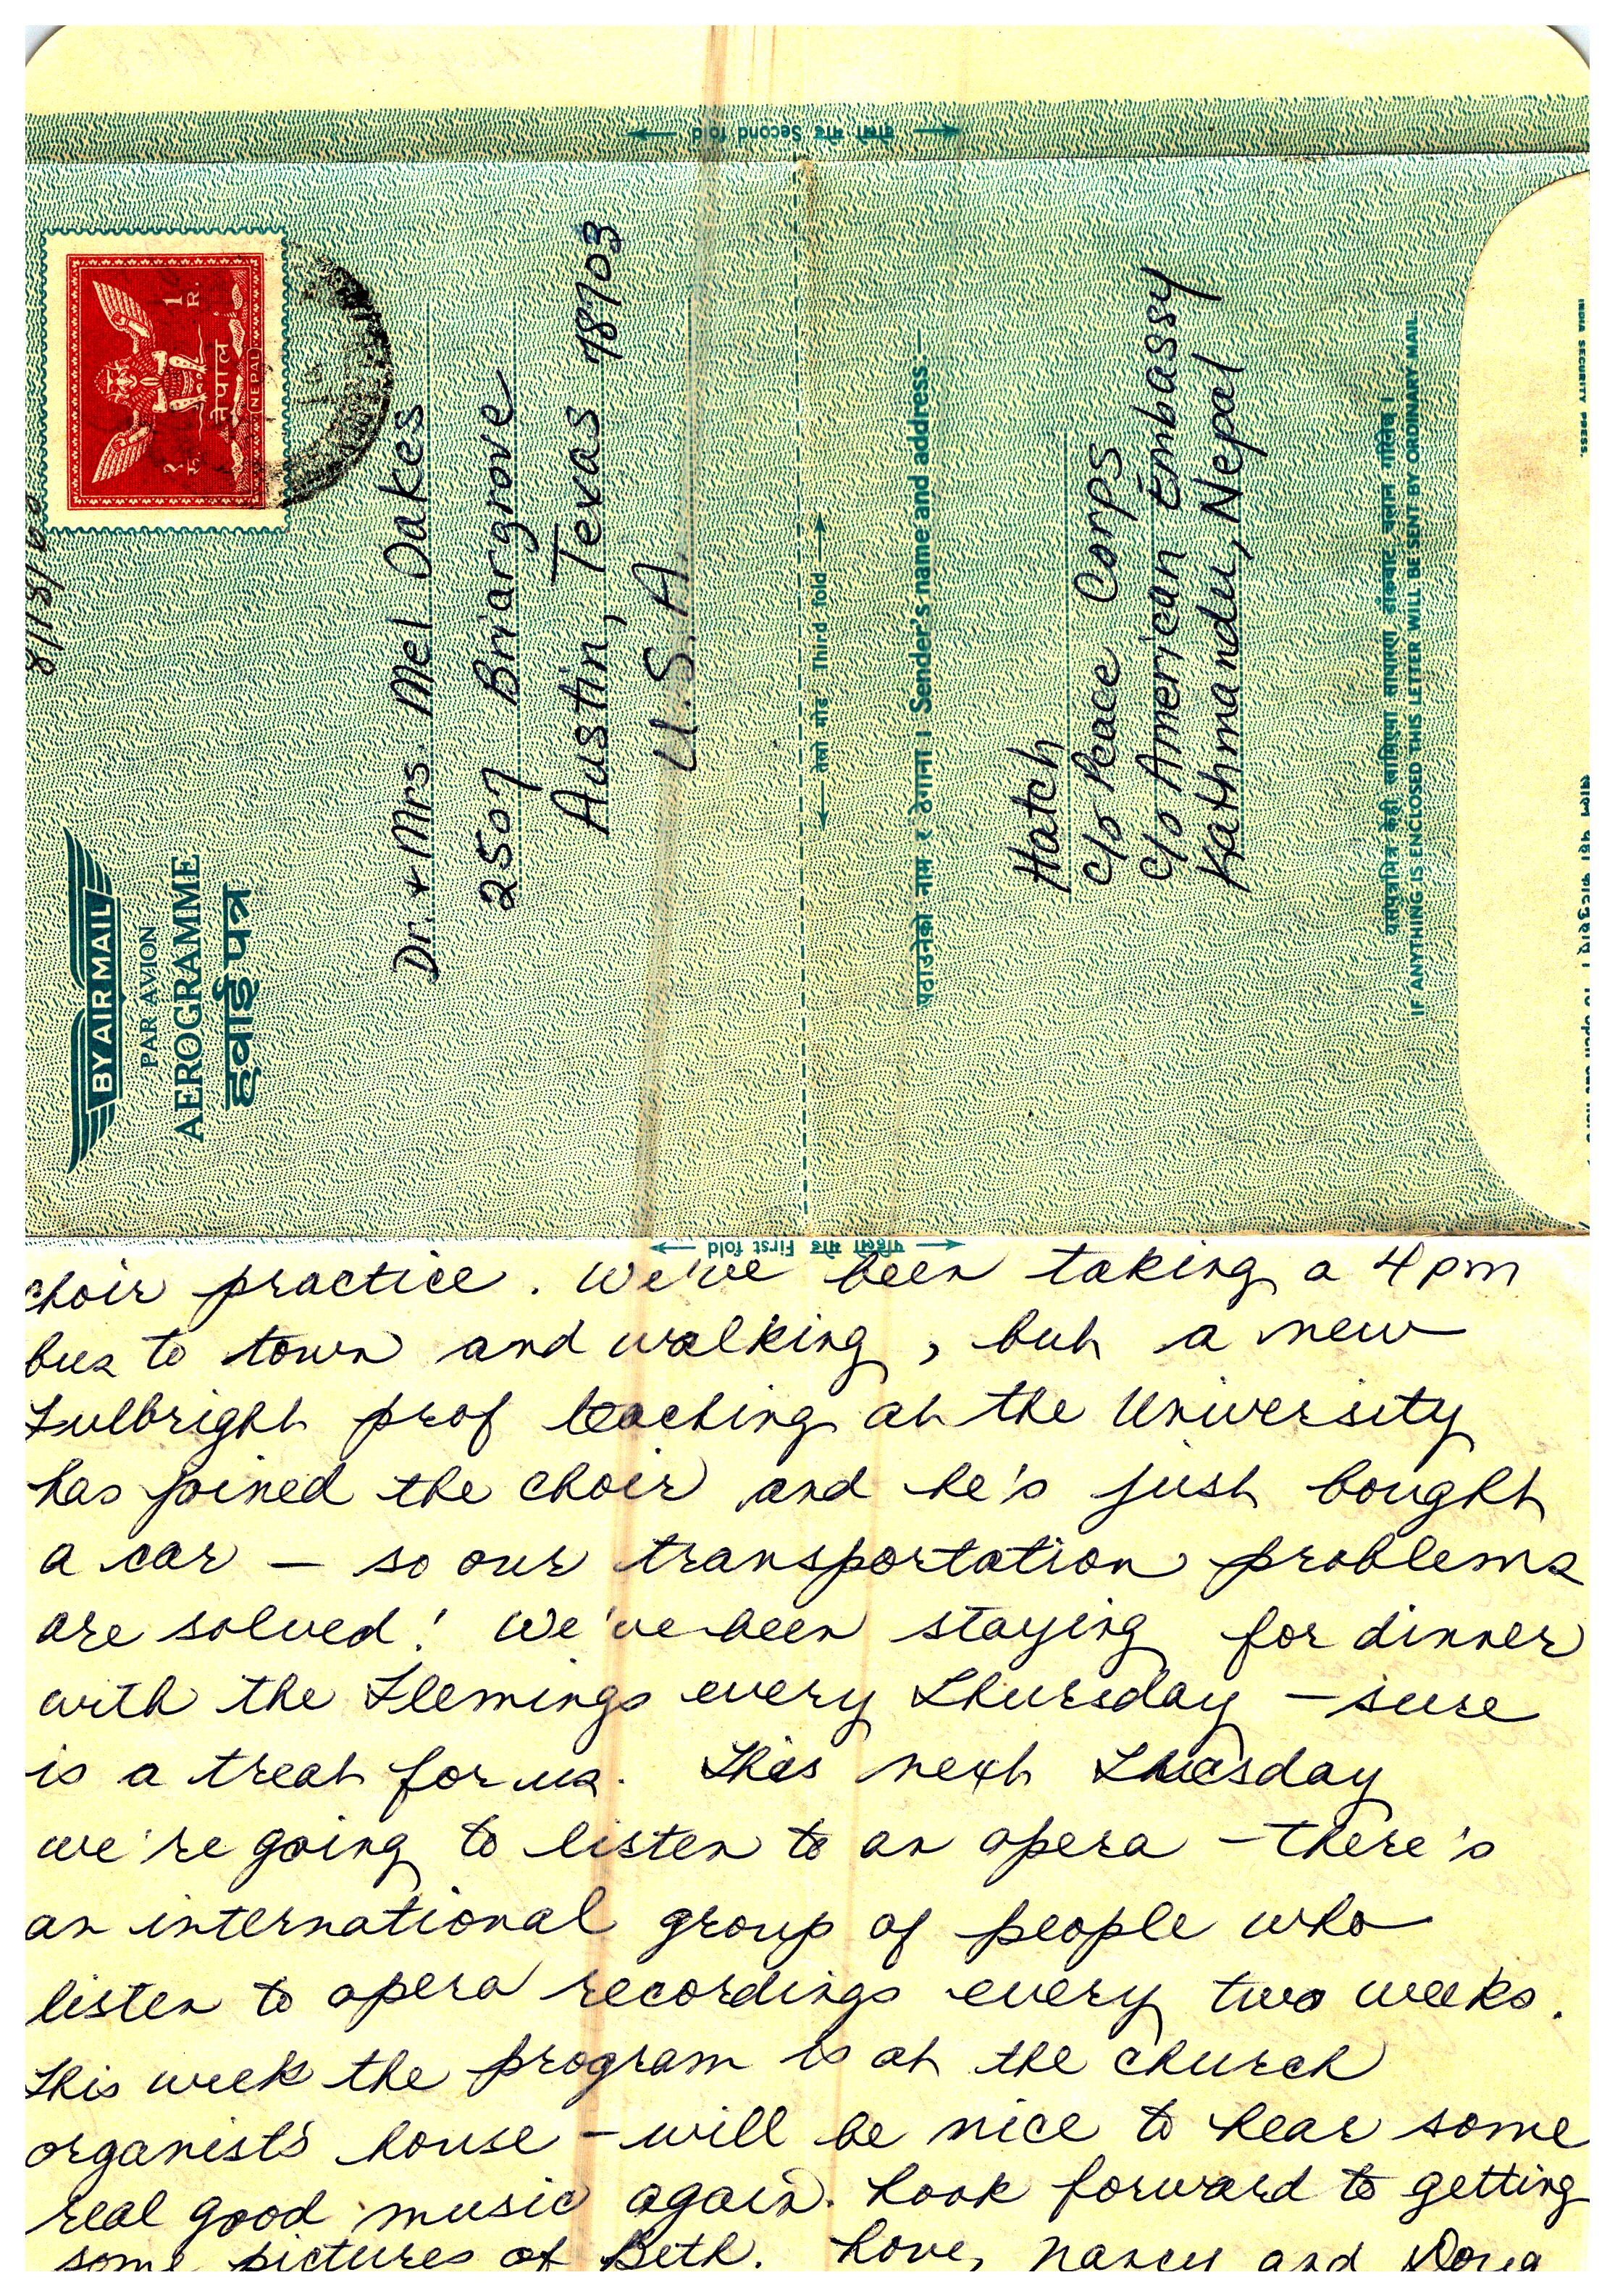 वोस्रो मोड Second fold
8/18/68
नेपाल
NEPAL
१ रु.
1 R.
BY AIR MAIL
PAR AVION
AEROGRAMME
हवाई पत्र
Dr. + Mrs. Mel Oakes
2507 Briargrove
Austin, Texas 78703
U.S.A.
तेस्रो मोड Third fold
पठाउनेको नाम र ठेगाना । Sender's name and address:—
Hatch
c/o Peace Corps
c/o American Embassy
Kathmandu, Nepal
IF ANYTHING IS ENCLOSED THIS LETTER WILL BE SENT BY ORDINARY MAIL
INDIA SECURITY PRESS.
पहिलो मोड First fold
choir practice. We've been taking a 4 pm
bus to town and walking, but a new
Fulbright prof teaching at the University
has joined the choir and he's just bought
a car — so our transportation problems
are solved! We've been staying for dinner
with the Flemings every Thursday — sure
is a treat for us. This next Tuesday
we're going to listen to an opera — there's
an international group of people who
listen to opera recordings every two weeks.
This week the program is at the church
organist's house — will be nice to hear some
real good music again. Look forward to getting
some pictures of Beth. Love, Nancy and Doug